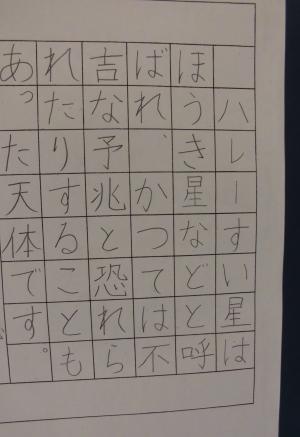 ハレーすい星は
ほうき星などと呼
ばれ、かつては不
吉な予兆と恐れら
れたりすることも
あった天体です。